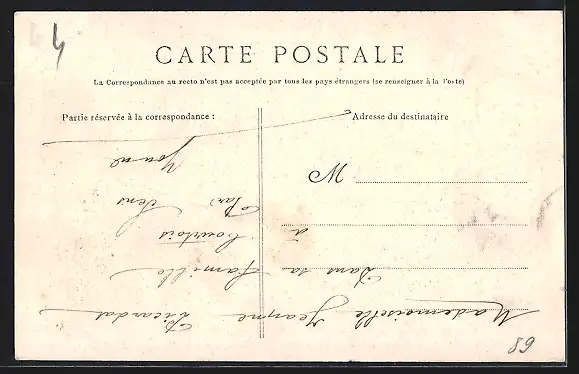 CARTE POSTALE
La Correspondance au recto n'est pas acceptée par tous les pays étrangers (se renseigner à la Poste)
Partie réservée à la correspondance :
Adresse du destinataire
M
à
Mademoiselle Jeanne Picardat
Dans sa famille
Courtois
Par Sens
Yonne
89